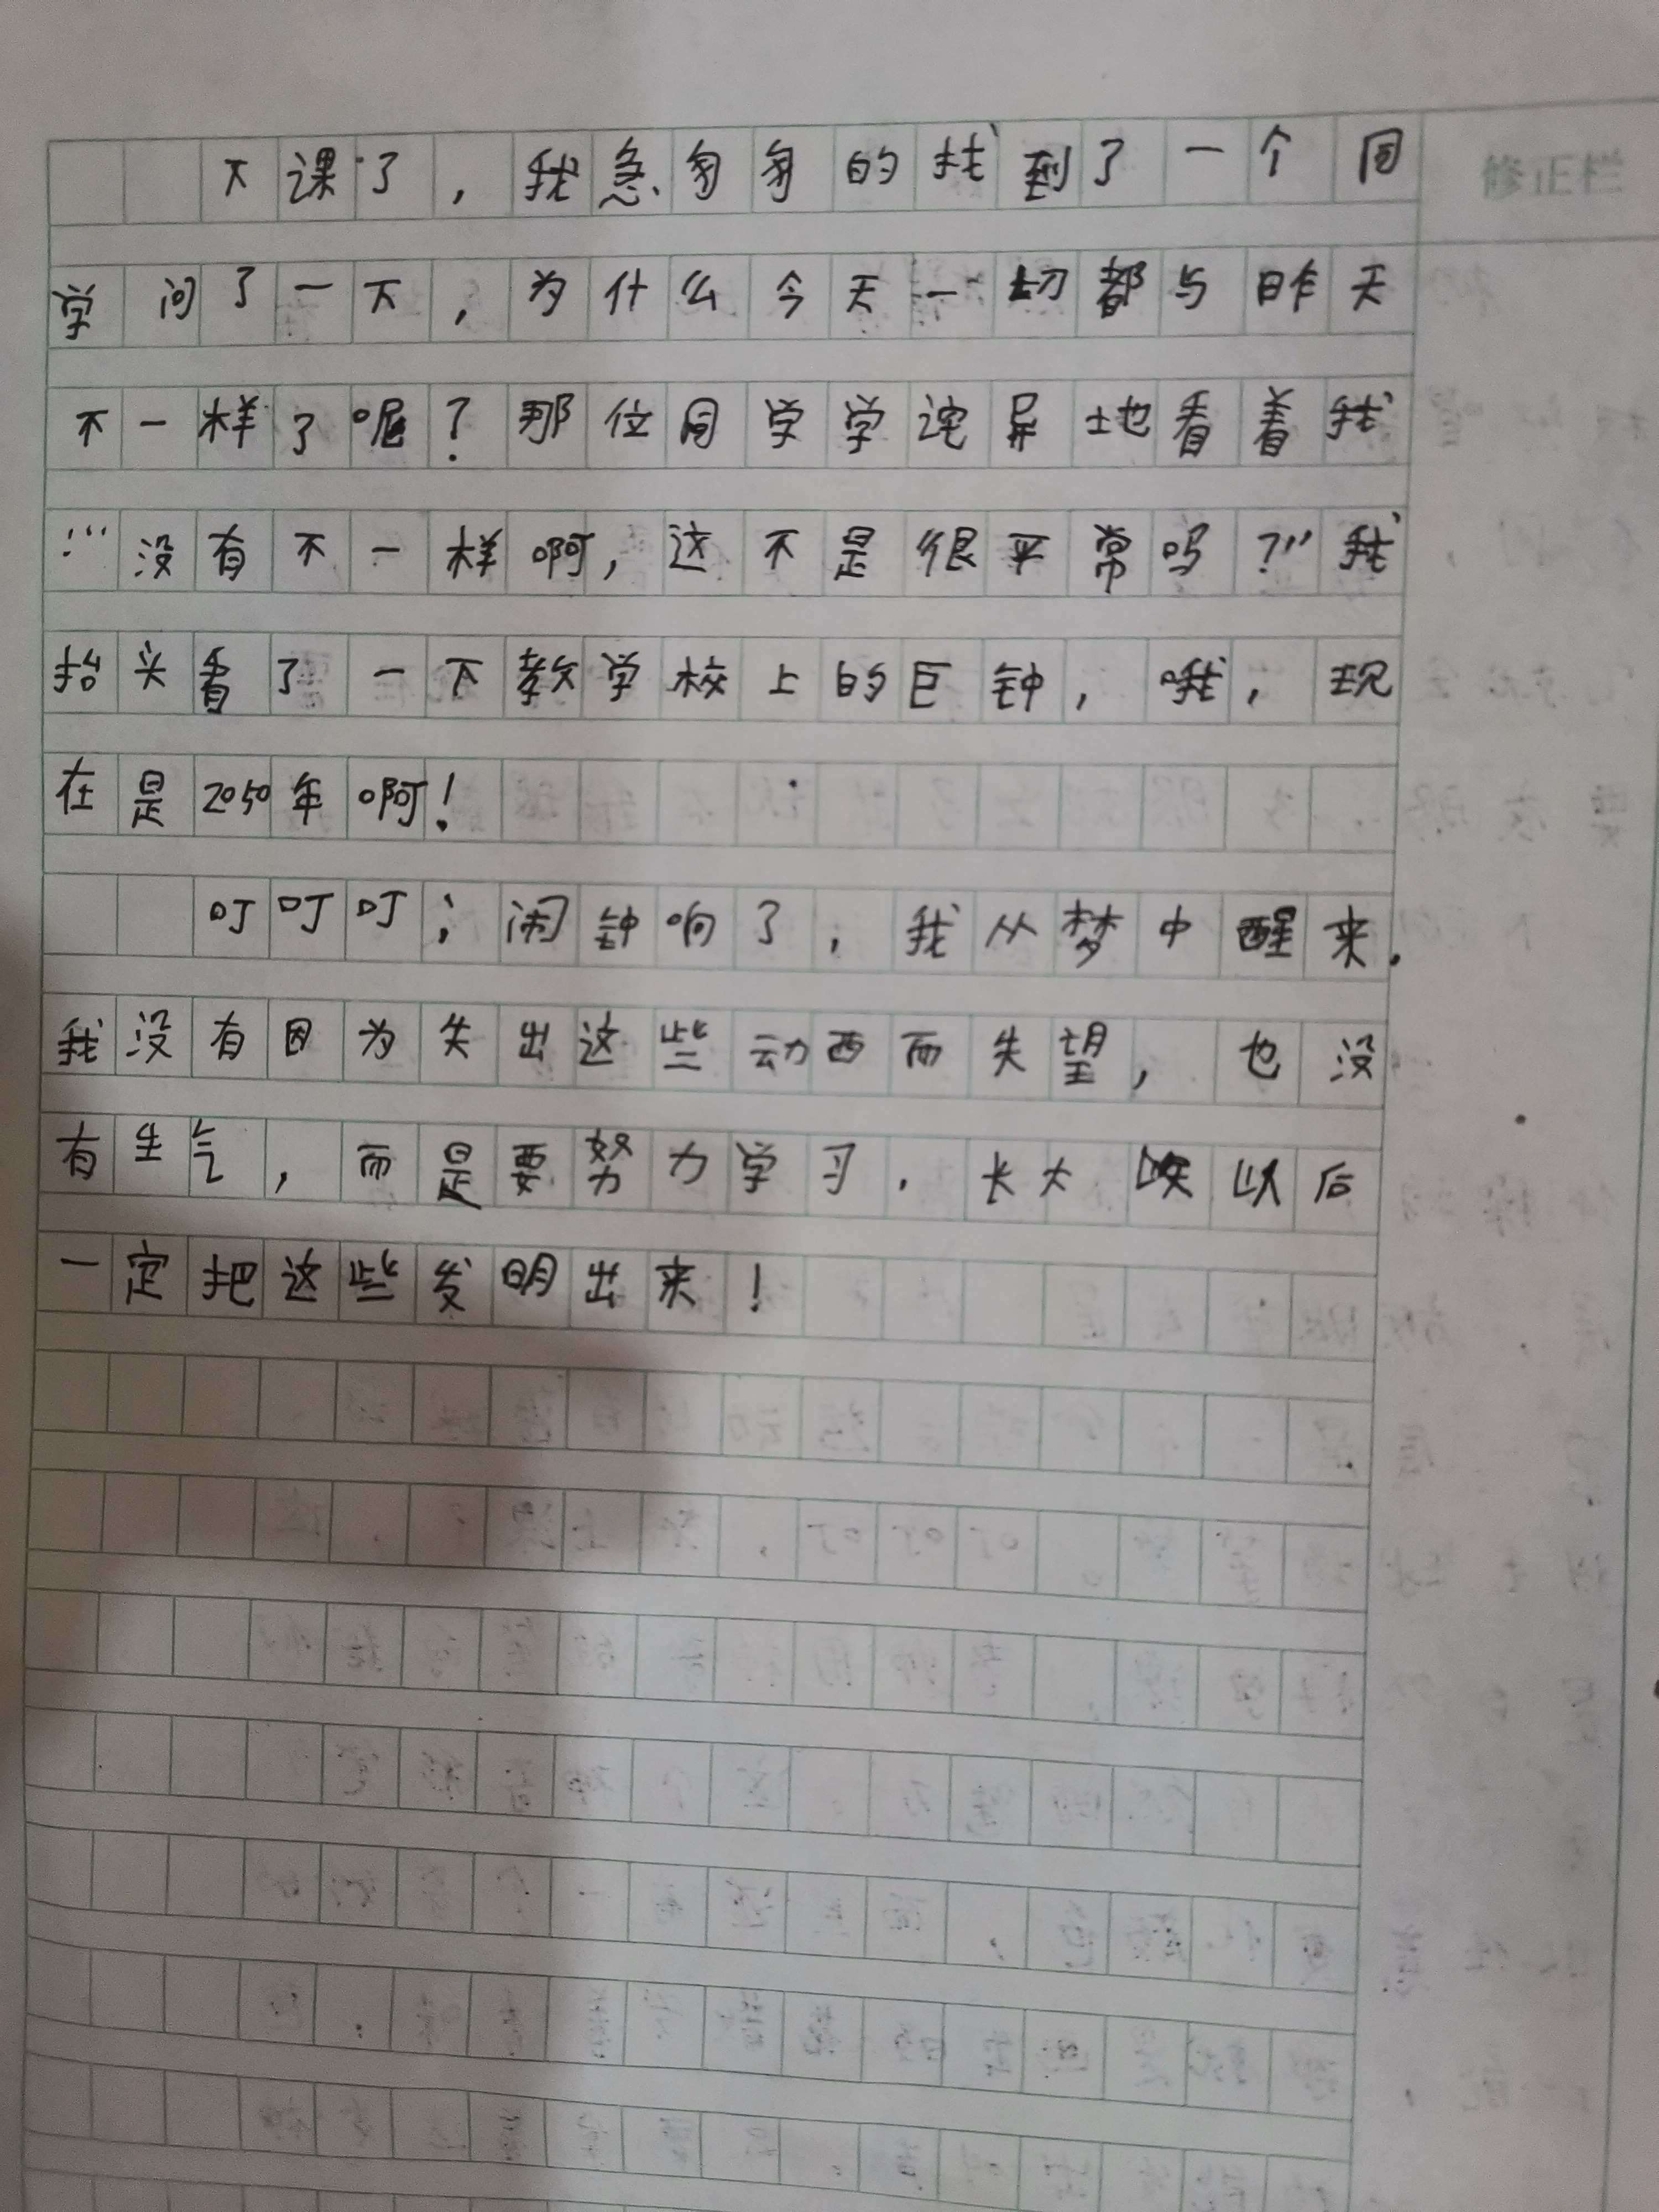 修正栏
下课了，我急匆匆的找到了一个同
学问了一下，为什么今天一切都与昨天
不一样了呢？那位同学学诧异地看着我
：“没有不一样啊，这不是很平常吗？”我
抬头看了一下教学校上的巨钟，哦，现
在是2050年啊！
叮叮叮；闹钟响了，我从梦中醒来.
我没有因为失出这些动西而失望，也没
有生气，而是要努力学习.长大以后
一定把这些发明出来！